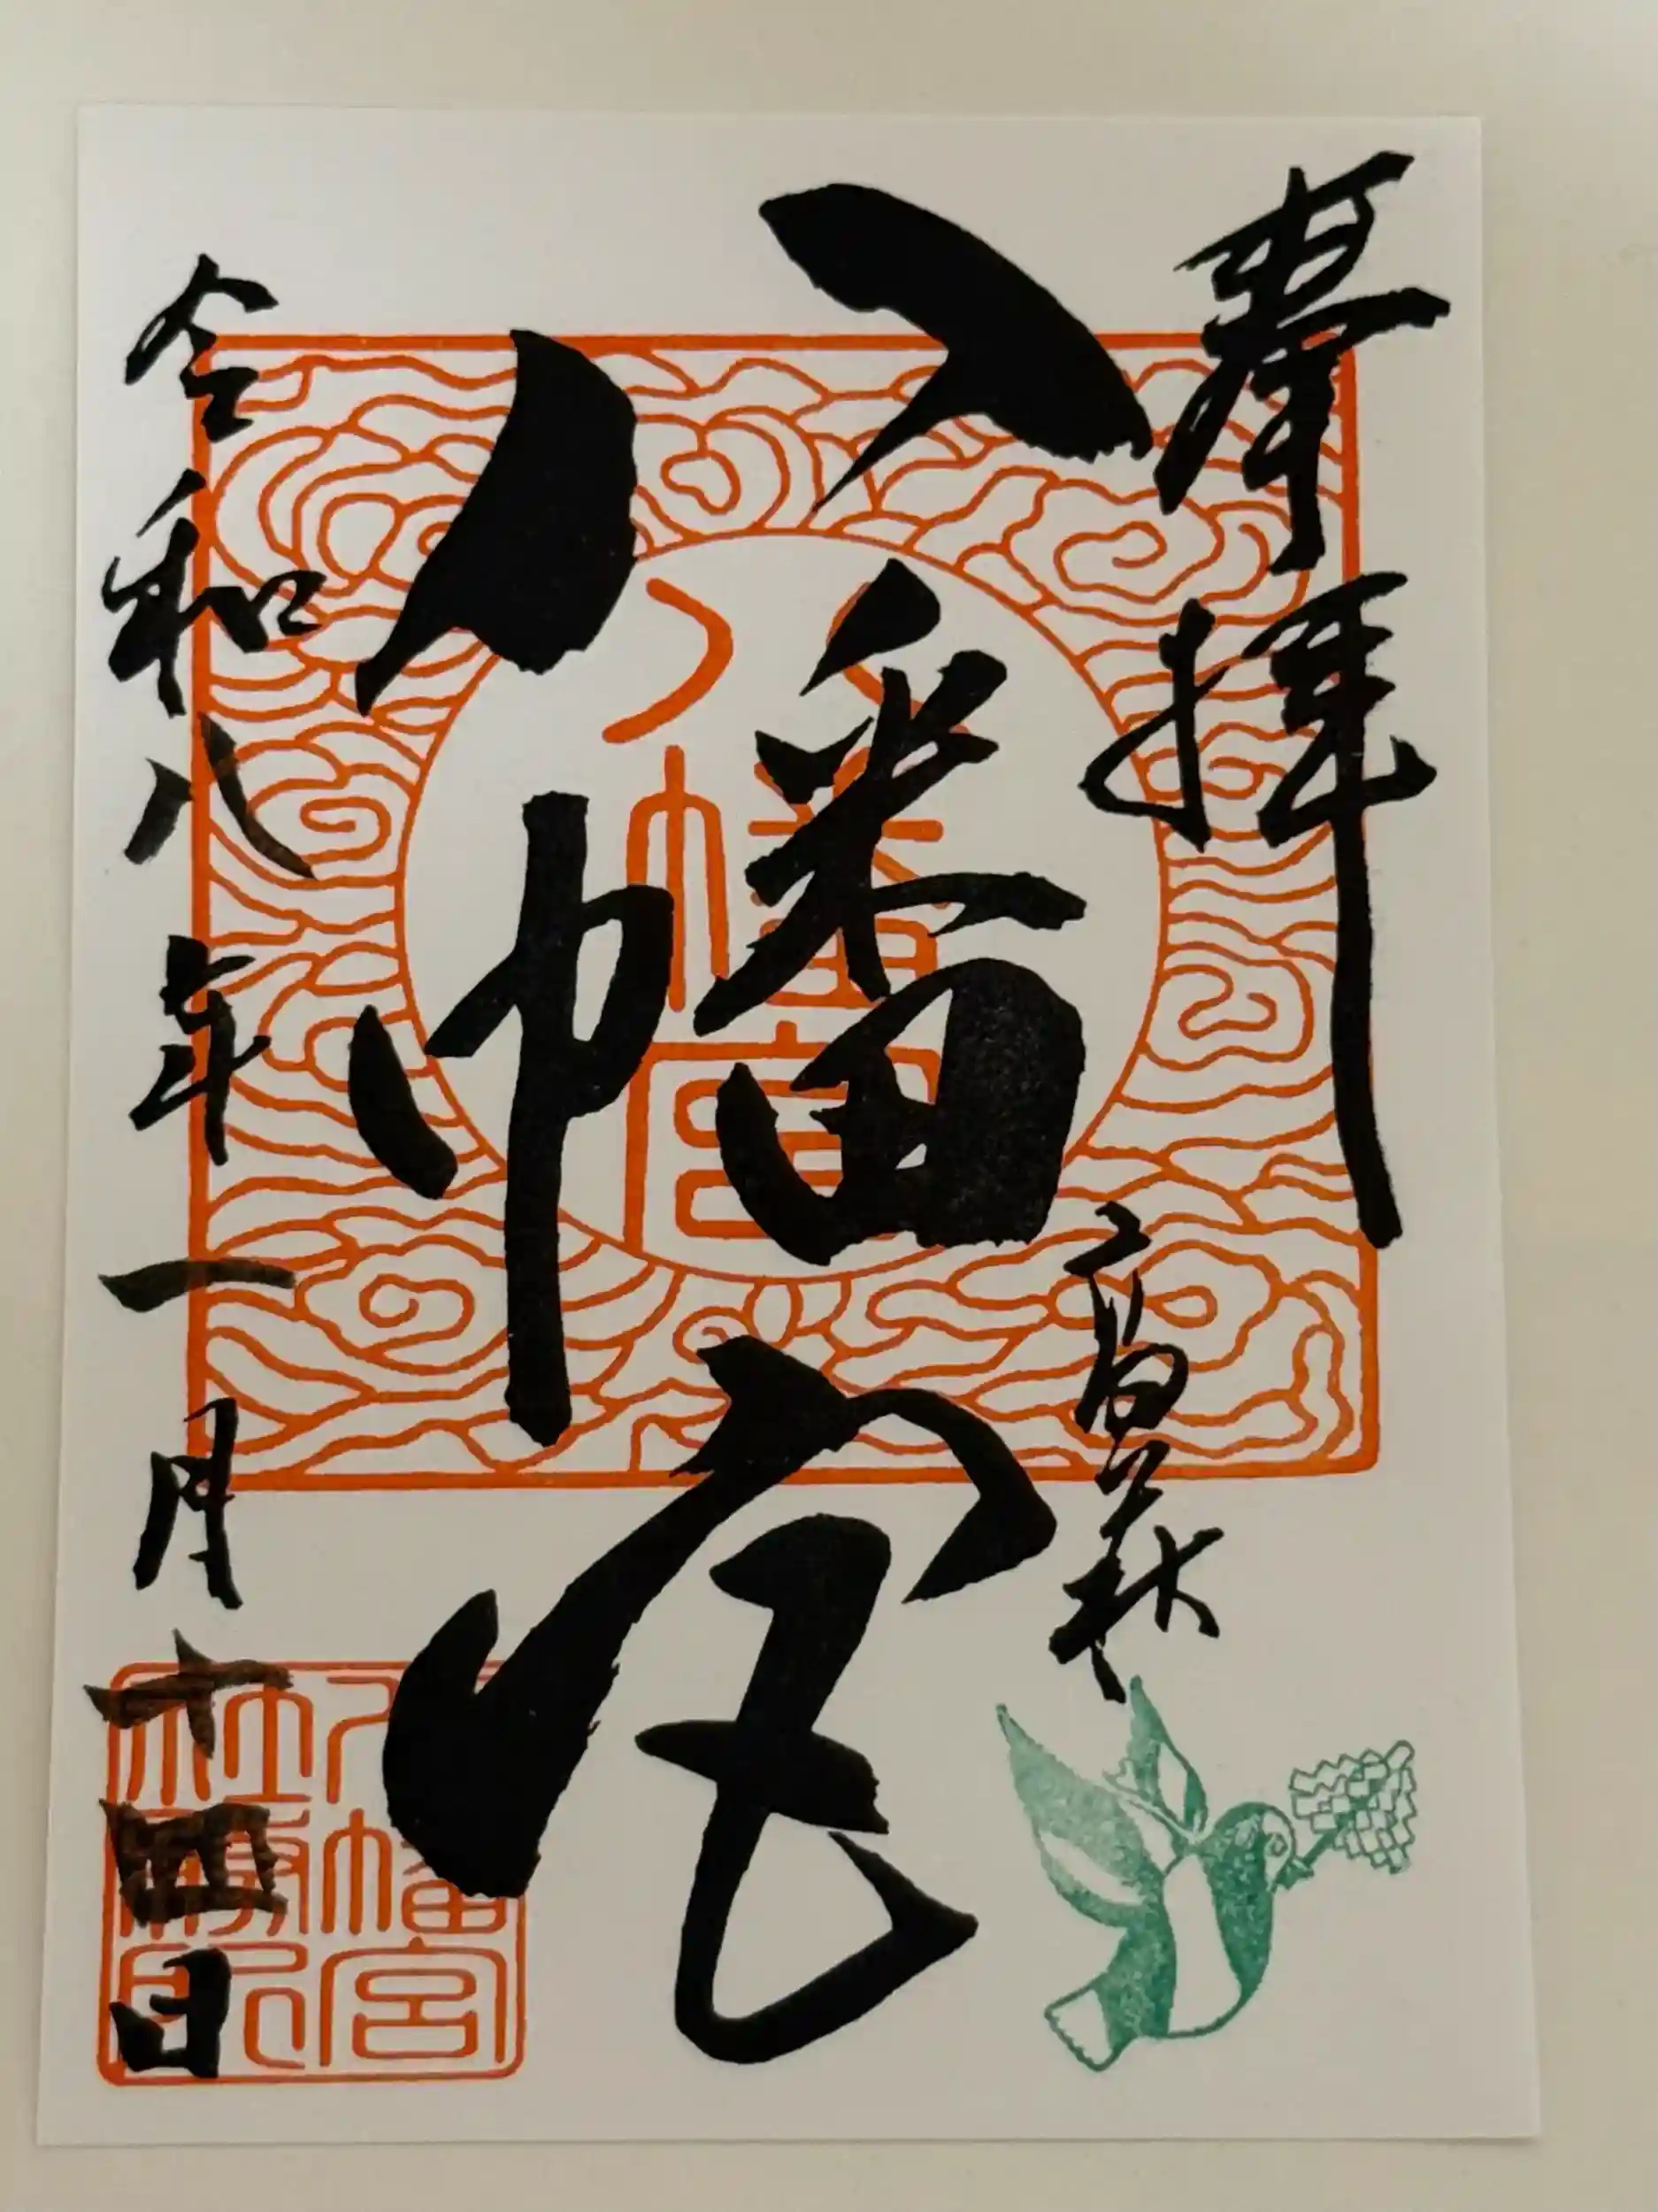 奉拝
高萩
八幡宮
八幡宮
令和八年一月十四日
八幡宮
社務所